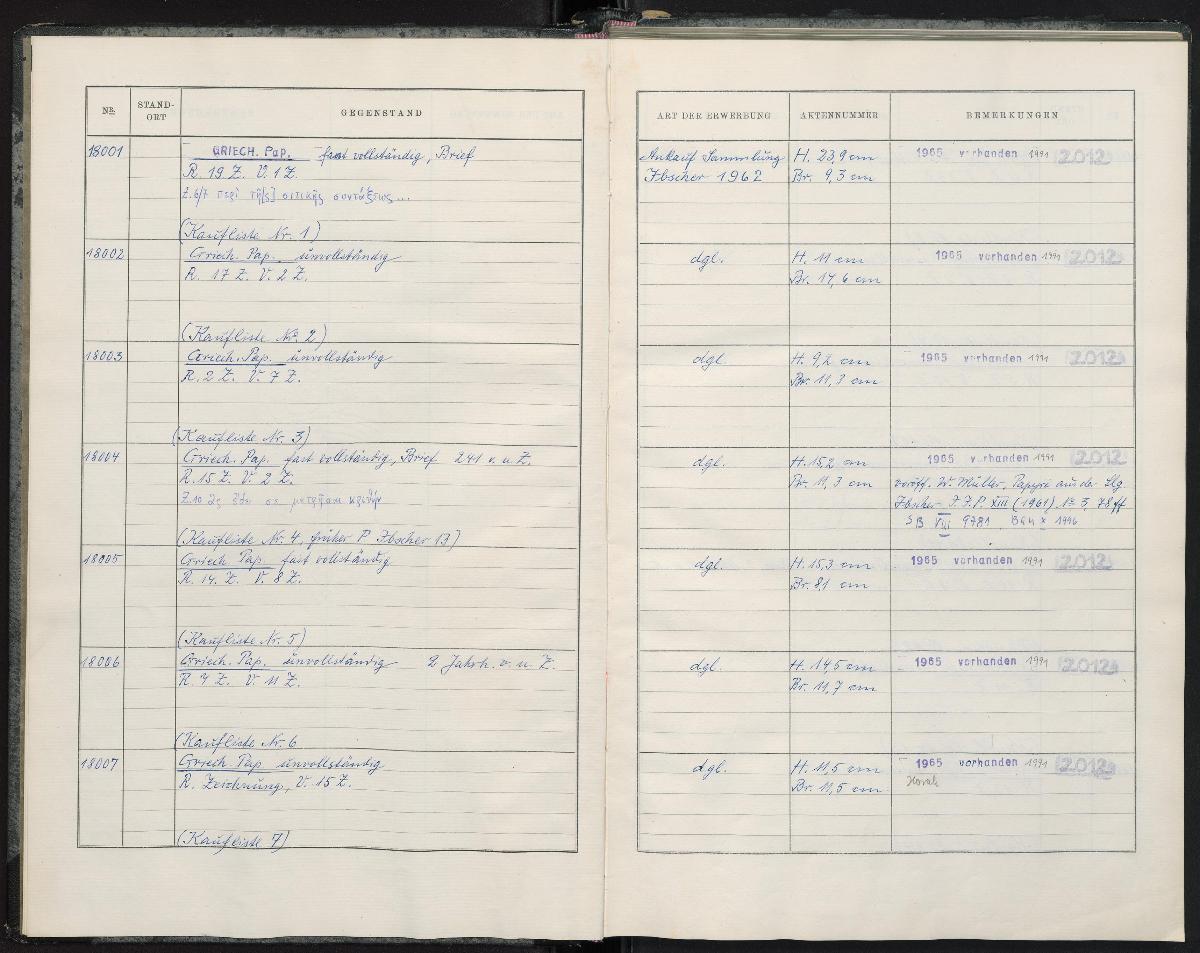 Nº STAND-ORT GEGENSTAND ART DER ERWERBUNG AKTENNUMMER BEMERKUNGEN
18001 GRIECH. Pap. fast vollständig, Brief Ankauf Sammlung H. 23,9 cm 1965 vorhanden 1991 2012
R. 19 Z. V. 1 Z. Ibscher 1962 Br. 9,3 cm
Z. 6/7 περὶ τῆ[ς] σιτικῆς συντάξεως...
(Kaufliste Nr. 1)
18002 Griech. Pap. unvollständig dgl. H. 11 cm 1965 vorhanden 1991 2012
R. 17 Z. V. 2 Z. Br. 14,6 cm
(Kaufliste Nr. 2)
18003 Griech. Pap. unvollständig dgl. H. 9,2 cm 1965 vorhanden 1991 2012
R. 2 Z. V. 7 Z. Br. 11,3 cm
(Kaufliste Nr. 3)
18004 Griech. Pap. fast vollständig, Brief 241 v. u. Z. dgl. H. 15,2 cm 1965 vorhanden 1991 2012
R. 15 Z. V. 2 Z. Br. 11,3 cm veröff. W. Müller, Papyri aus der Slg.
Z. 10 σε κριθὴν Ibscher J.J.P. XIII (1961) Nº 3, 78 ff
SB VIII 9781 1996
(Kaufliste Nr. 4, früher P. Ibscher 13)
18005 Griech. Pap. fast vollständig dgl. H. 15,3 cm 1965 vorhanden 1991 2012
R. 14. Z. V. 8 Z. Br. 8,1 cm
(Kaufliste Nr. 5)
18006 Griech. Pap. unvollständig 2 Jahrh. v. u. Z. dgl. H. 14,5 cm 1965 vorhanden 1991 2012
R. 4 Z. V. 11 Z. Br. 11,7 cm
(Kaufliste Nr. 6
18007 Griech. Pap unvollständig dgl. H. 11,5 cm 1965 vorhanden 1991 2012
R. Zeichnung, V. 15 Z. Br. 11,5 cm
(Kaufliste 7)